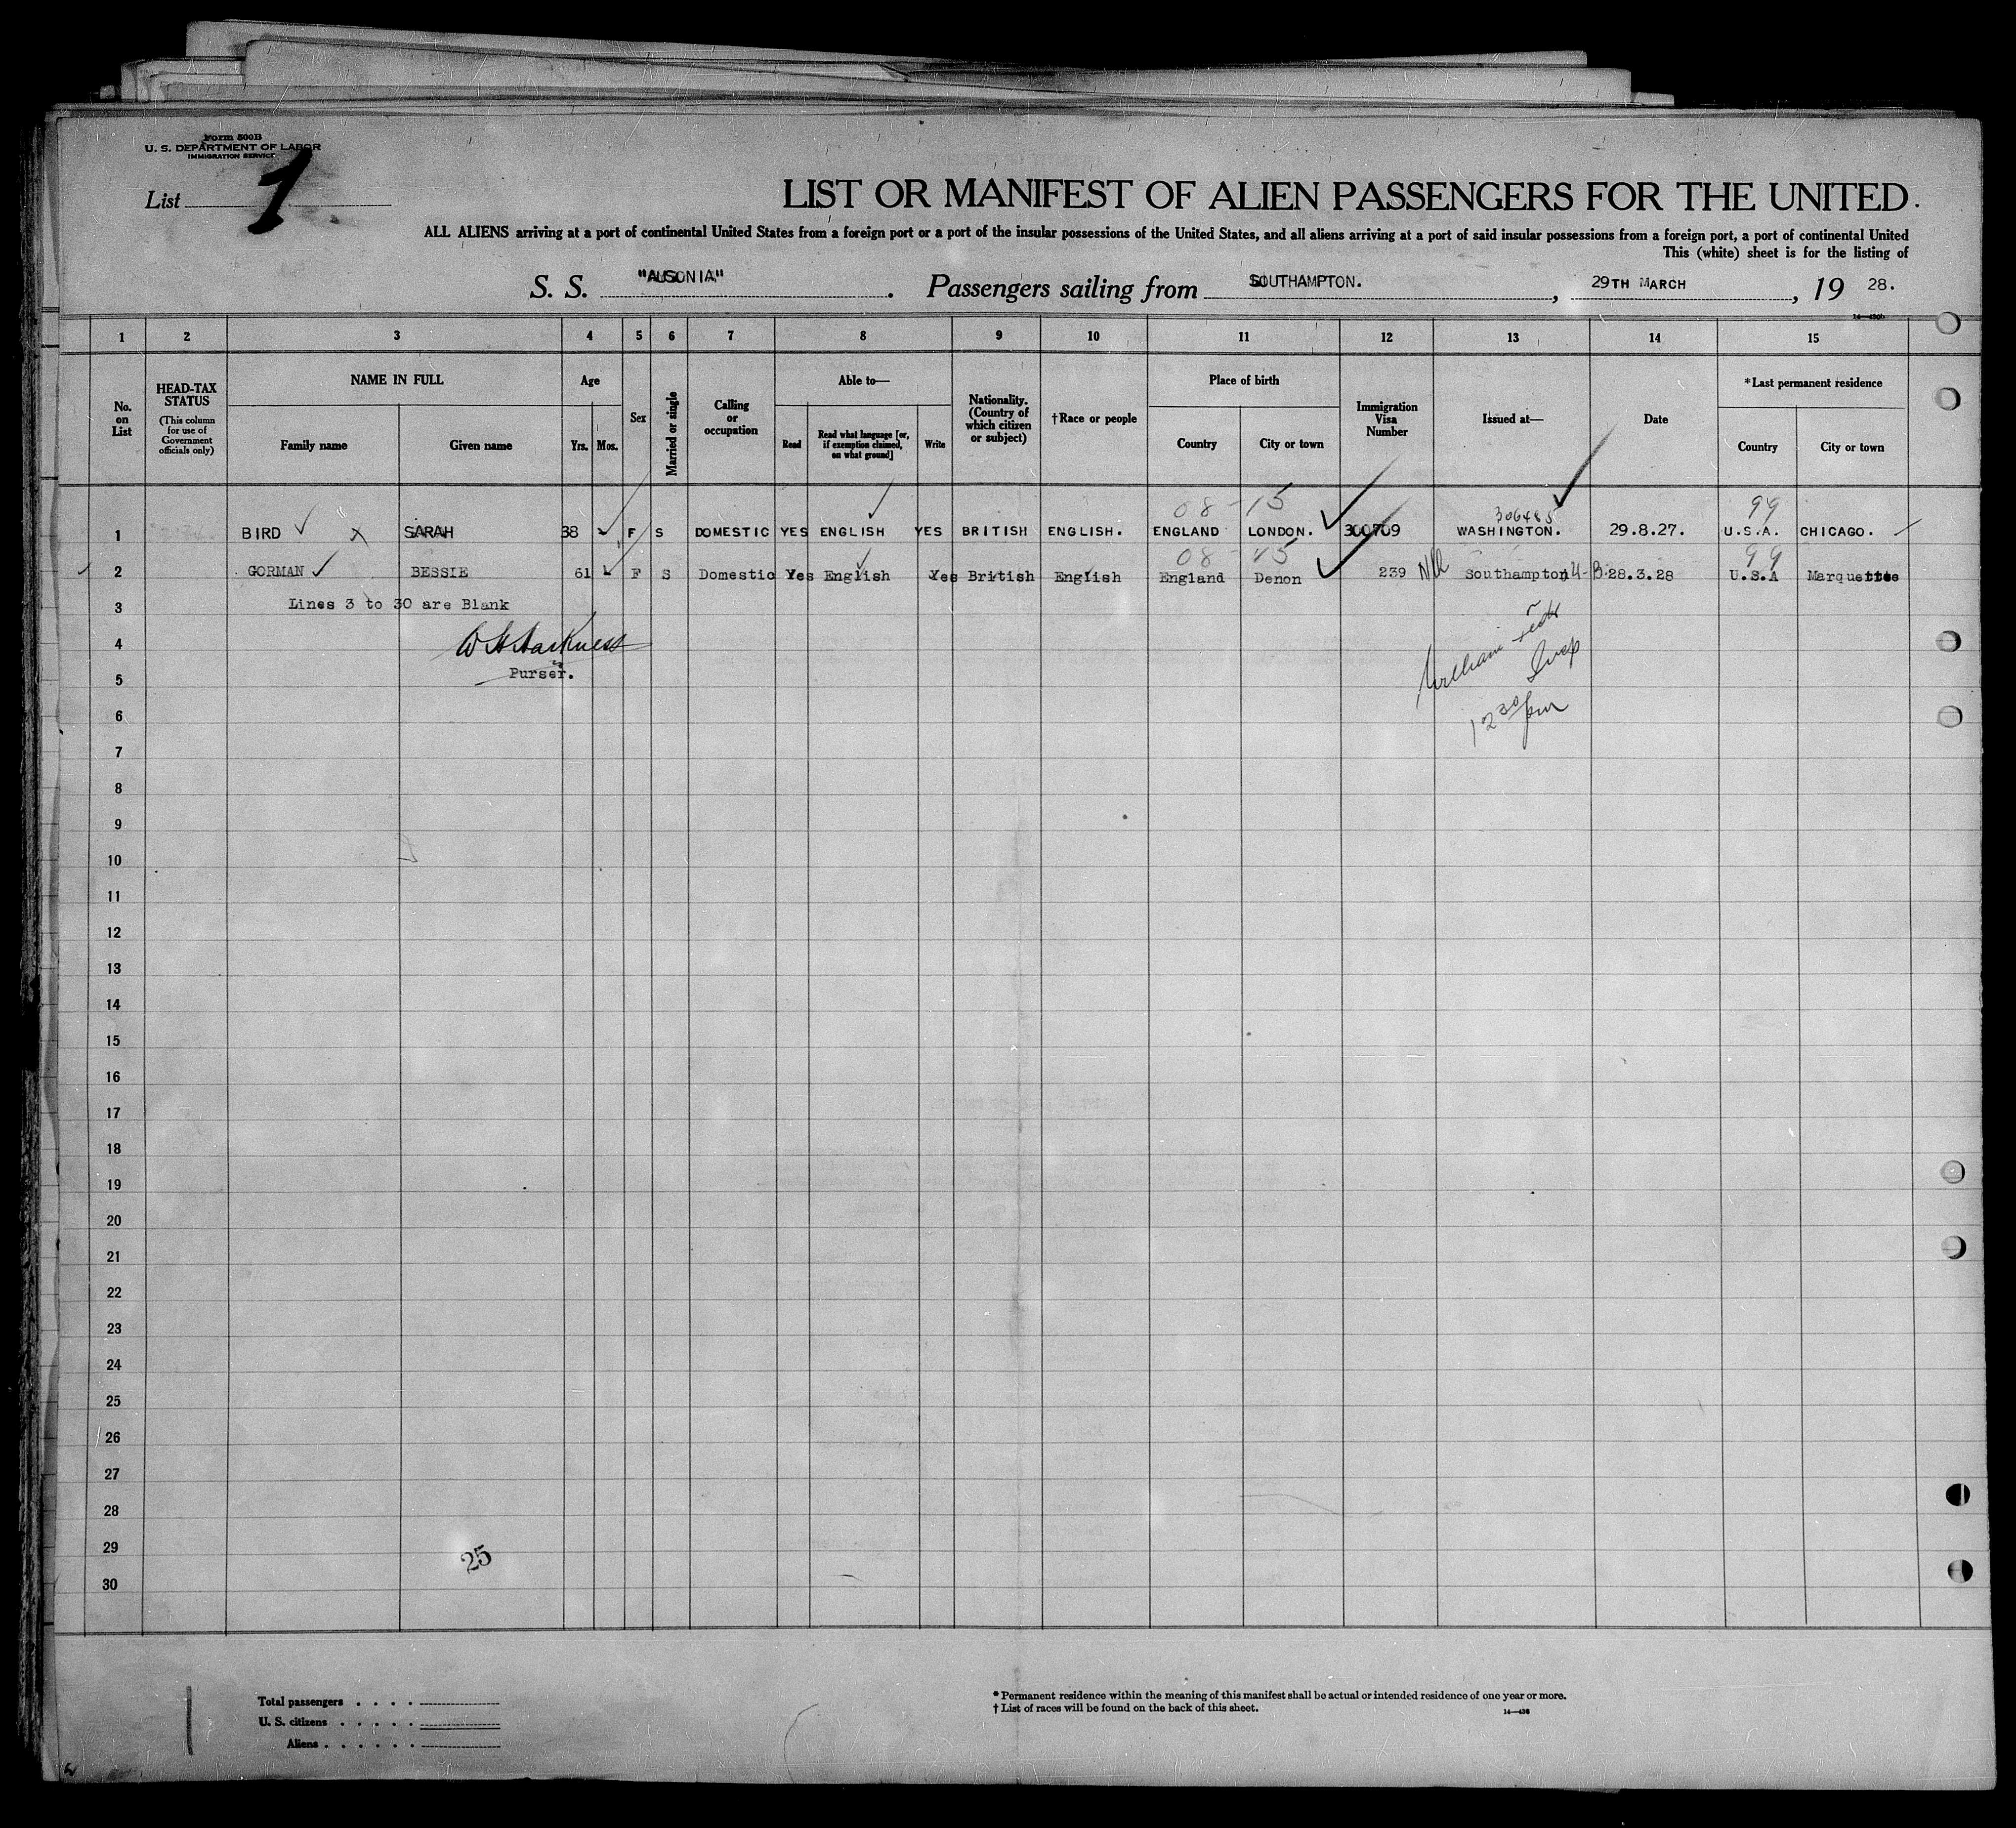 Form 500B
U. S. DEPARTMENT OF LABOR
IMMIGRATION SERVICE
List 1
LIST OR MANIFEST OF ALIEN PASSENGERS FOR THE UNITED
ALL ALIENS arriving at a port of continental United States from a foreign port or a port of the insular possessions of the United States, and all aliens arriving at a port of said insular possessions from a foreign port, a port of continental United
This (white) sheet is for the listing of
S. S. "AUSONIA". Passengers sailing from SOUTHAMPTON. , 29TH MARCH , 19 28.
1 2 3 4 5 6 7 8 9 10 11 12 13 14 15
No. on List
HEAD-TAX STATUS
(This column for use of Government officials only)
NAME IN FULL
Family name Given name
Age
Yrs. Mos.
Sex
Married or single
Calling or occupation
Able to—
Read
Read what language [or, if exemption claimed, on what ground]
Write
Nationality. (Country of which citizen or subject)
†Race or people
Place of birth
Country City or town
Immigration Visa Number
Issued at—
Date
*Last permanent residence
Country City or town
08-15 306485 99
1 BIRD X SARAH 38 - F S DOMESTIC YES ENGLISH YES BRITISH ENGLISH. ENGLAND LONDON. 300709 WASHINGTON. 29.8.27. U.S.A. CHICAGO.
08 99
2 GORMAN BESSIE 61 - F S Domestic Yes English Yes British English England Denon 239 Southampton 28.3.28 U.S.A
3 Lines 3 to 30 are Blank
4 W H Harkness
5 Purser.
William
Insp
12 30 pm
6
7
8
9
10
11
12
13
14
15
16
17
18
19
20
21
22
23
24
25
26
27
28
29
30
25
Total passengers . . . .
U. S. citizens . . . . .
Aliens . . . . . .
* Permanent residence within the meaning of this manifest shall be actual or intended residence of one year or more.
† List of races will be found on the back of this sheet.
14—436